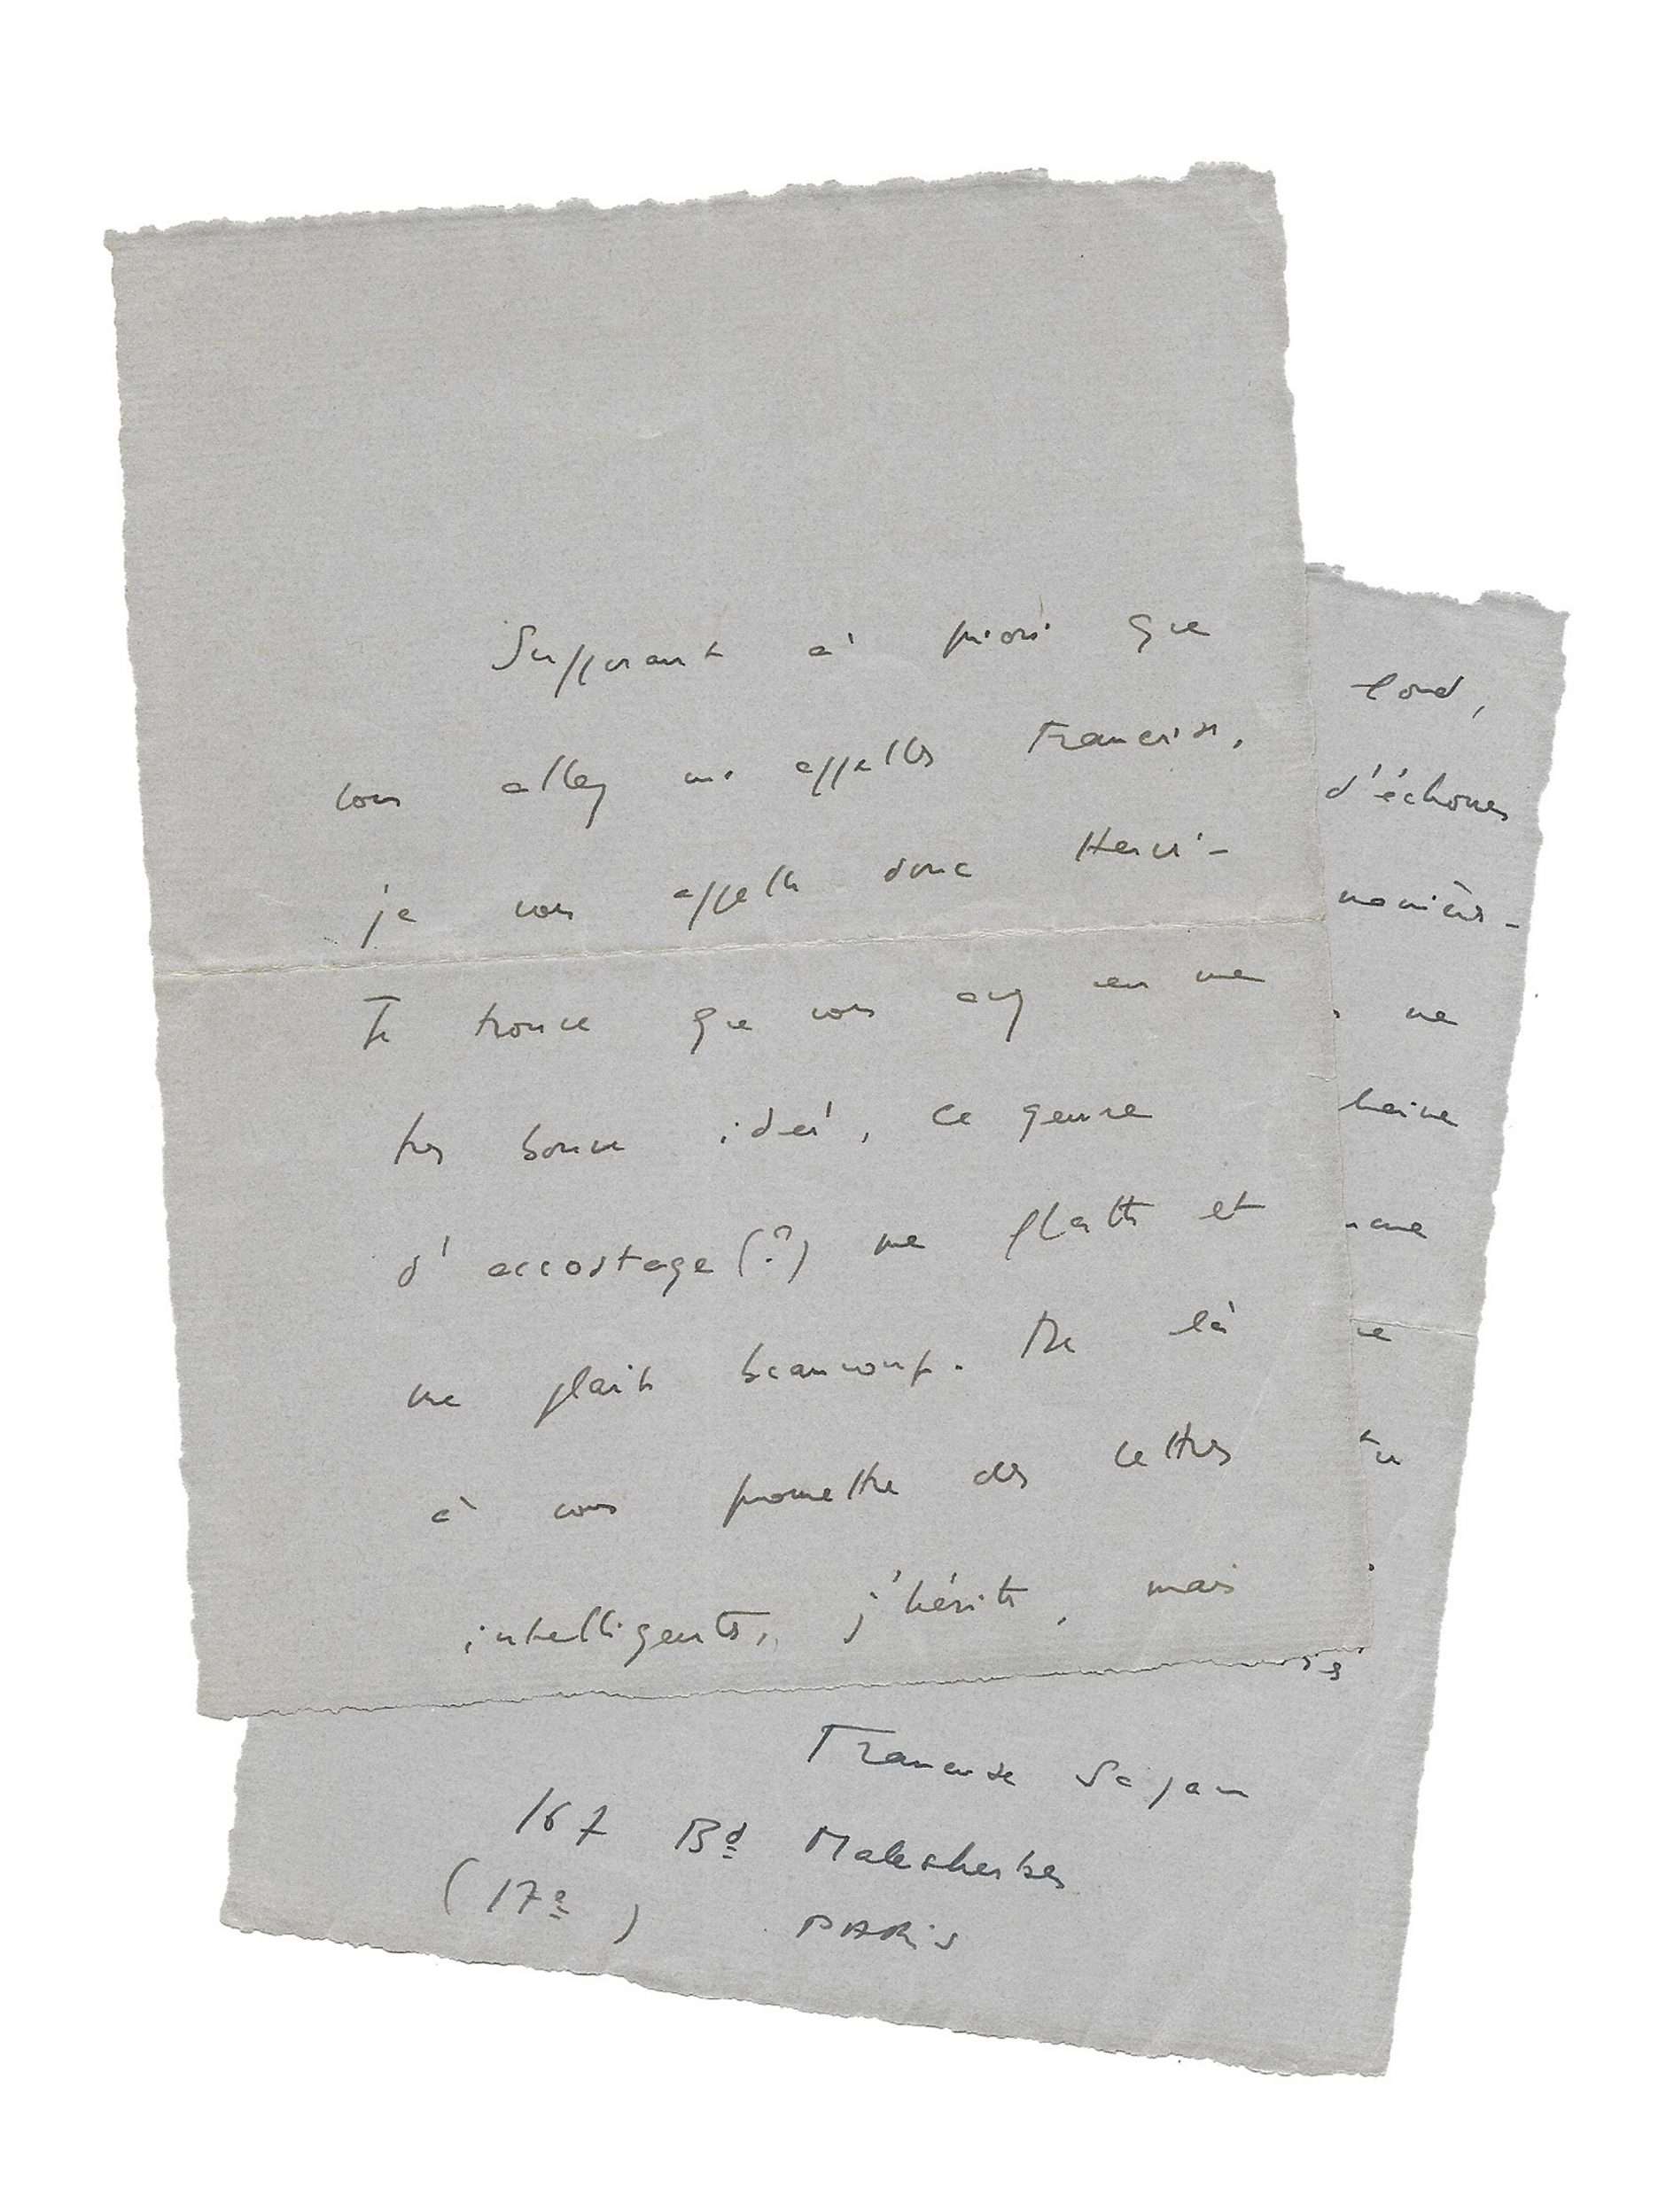 Supposant a' priori que
vous allez me appeller Françoise,
je vous appelle donc Henri -
Je trouve que vous avez eu une
très bonne ideé, ce genre
d'accostage (?) me flatte et
me plait beaucoup. De là
à vous promettre des lettres
intelligentes, j'hésite, mais
d'échouer
manière -
ne
haine
tu
Françoise Sagan
167 Bd Malesherbes
(17e) PARis